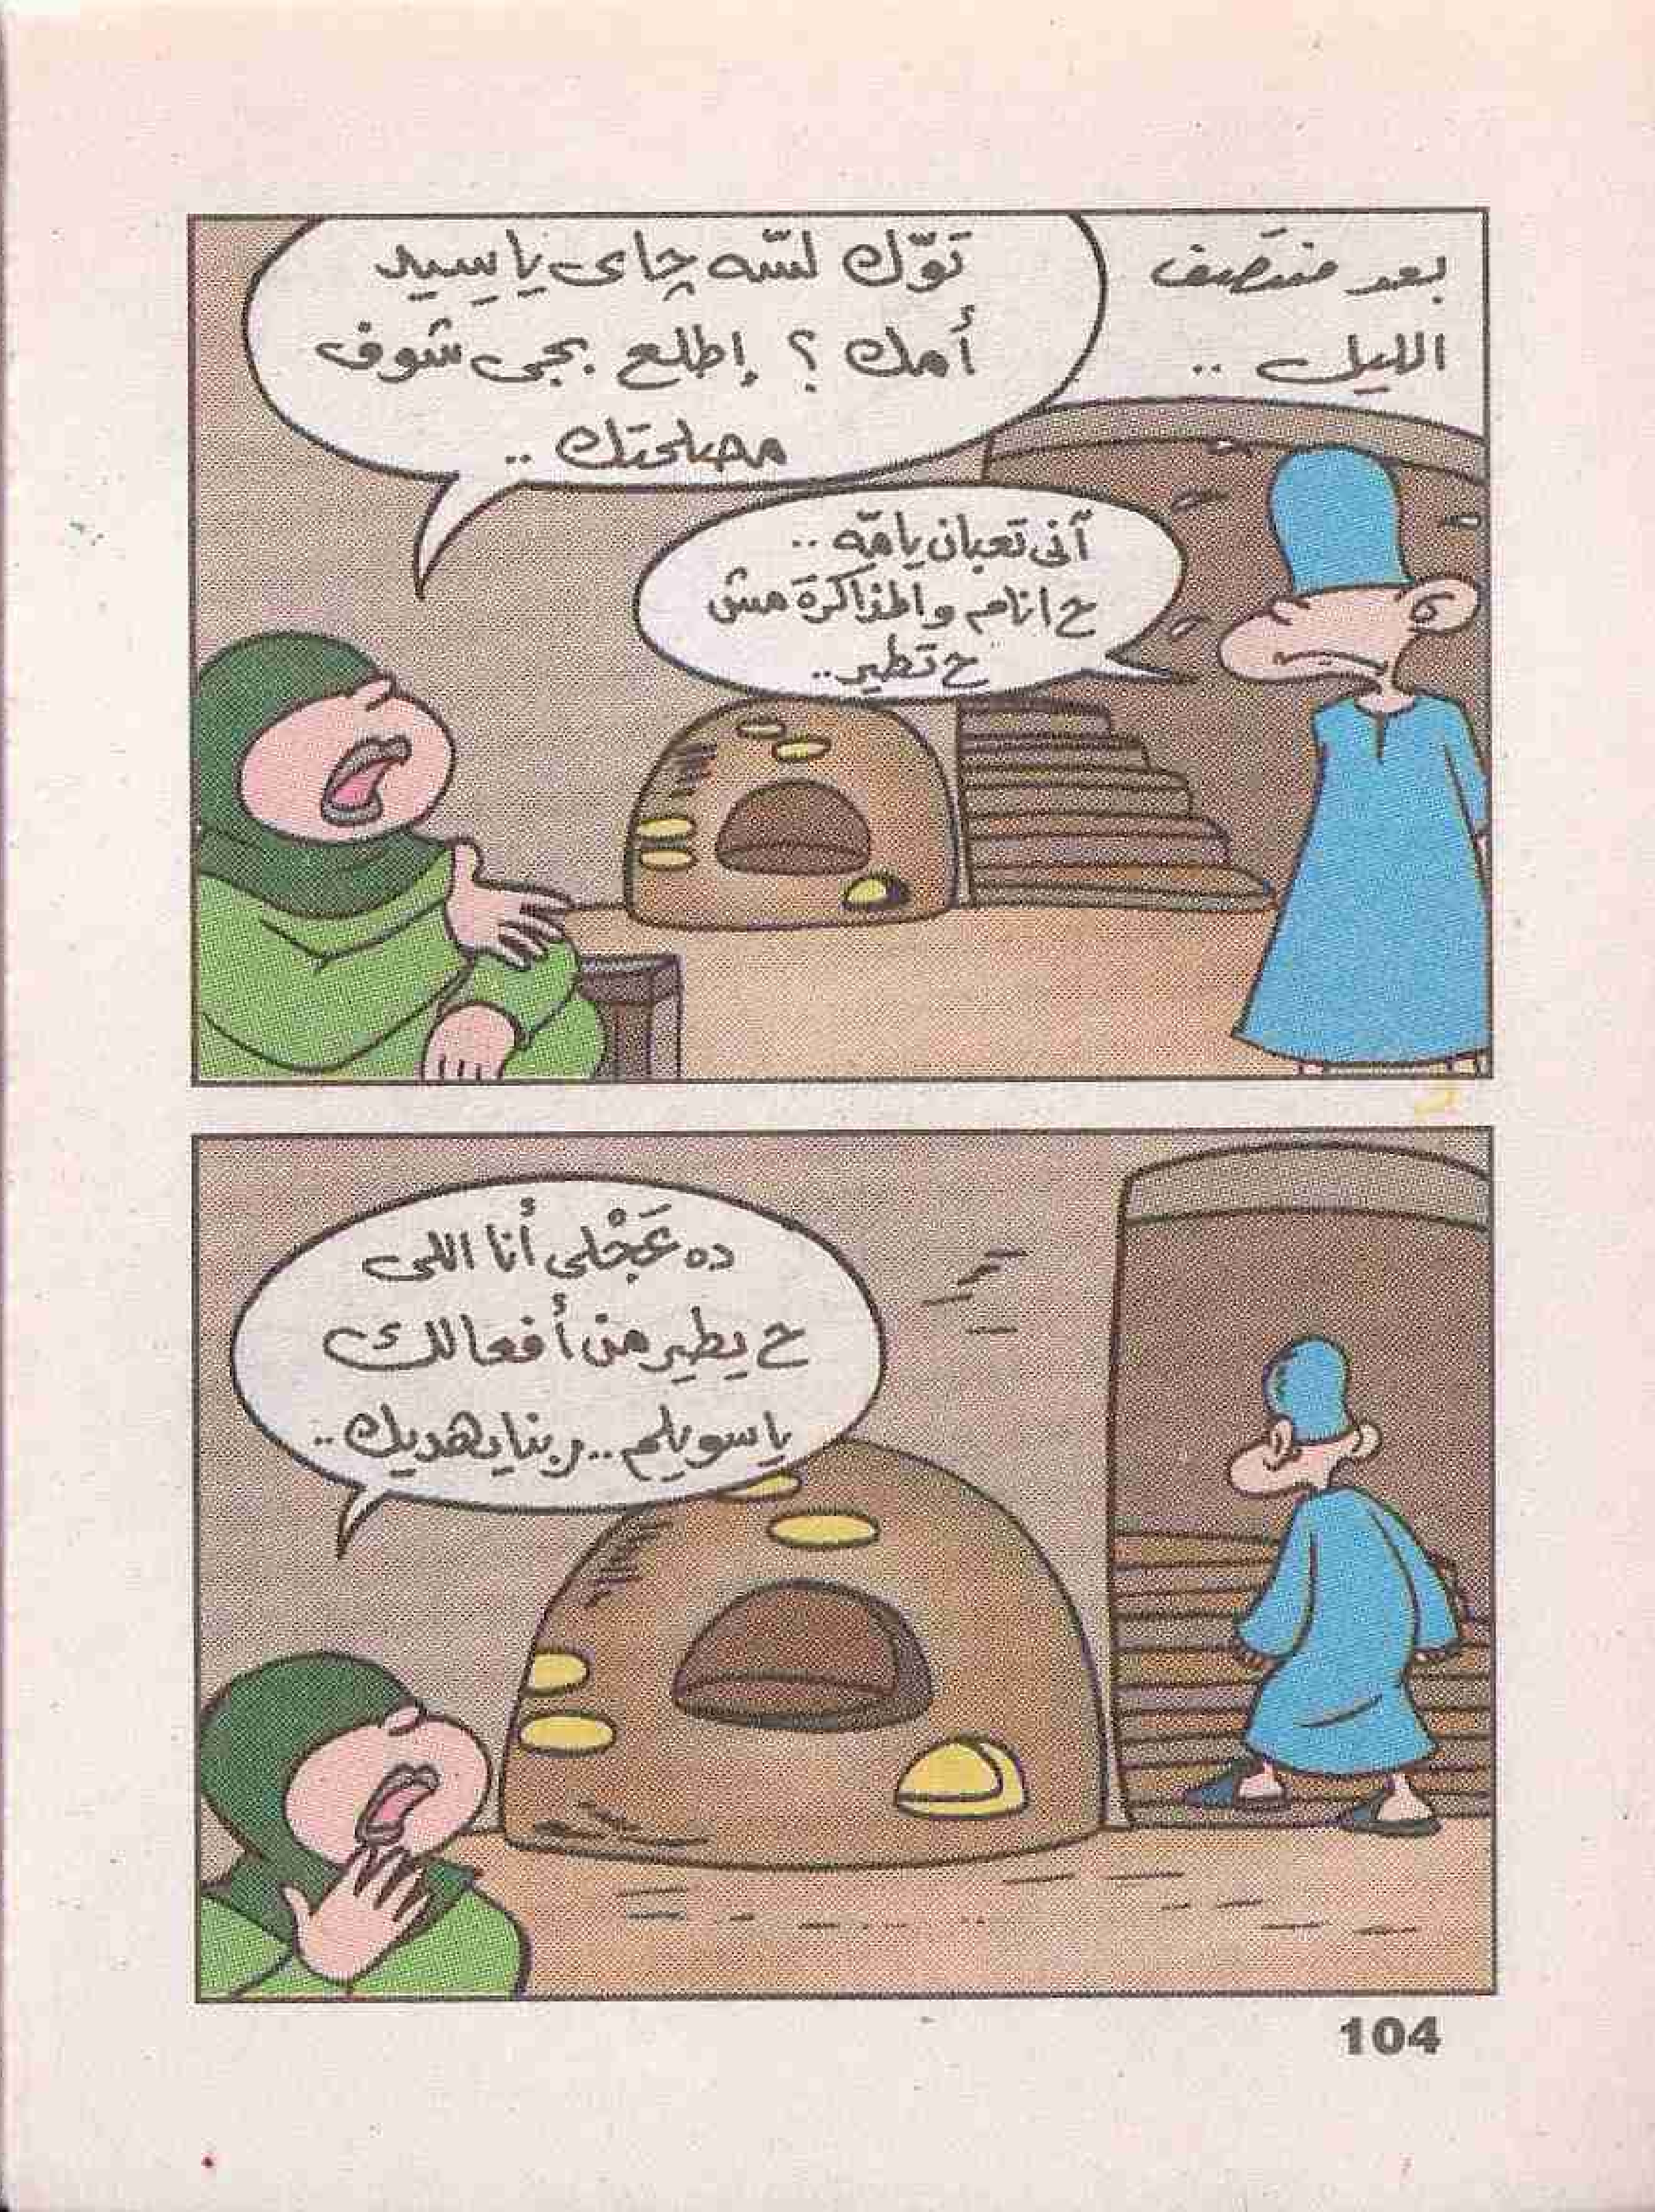 بعد منتصَف
الليل ..
تَوّك لسّه چاى يا سِيد
أُمك ؟ إطلع بجى شوف
مصلحتك ..
آنى تعبان يامّه ..
ح انام والمذاكرة مش
ح تطير ..
ده عَجْلى أنا اللى
ح يطير من أفعالك
يا سويلم .. ربنا يهديك ..
104